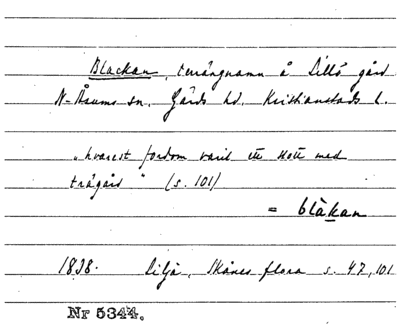 Blackan, terrängnamn å Lillö gård
N-Åsums sn. Gärds hd. Kristianstads l.
„hvarest fordom varit ett slott med
trägård" (s. 101)
= blåkan
1838. Lilja, Skånes flora s. 47, 101
Nr 5344.